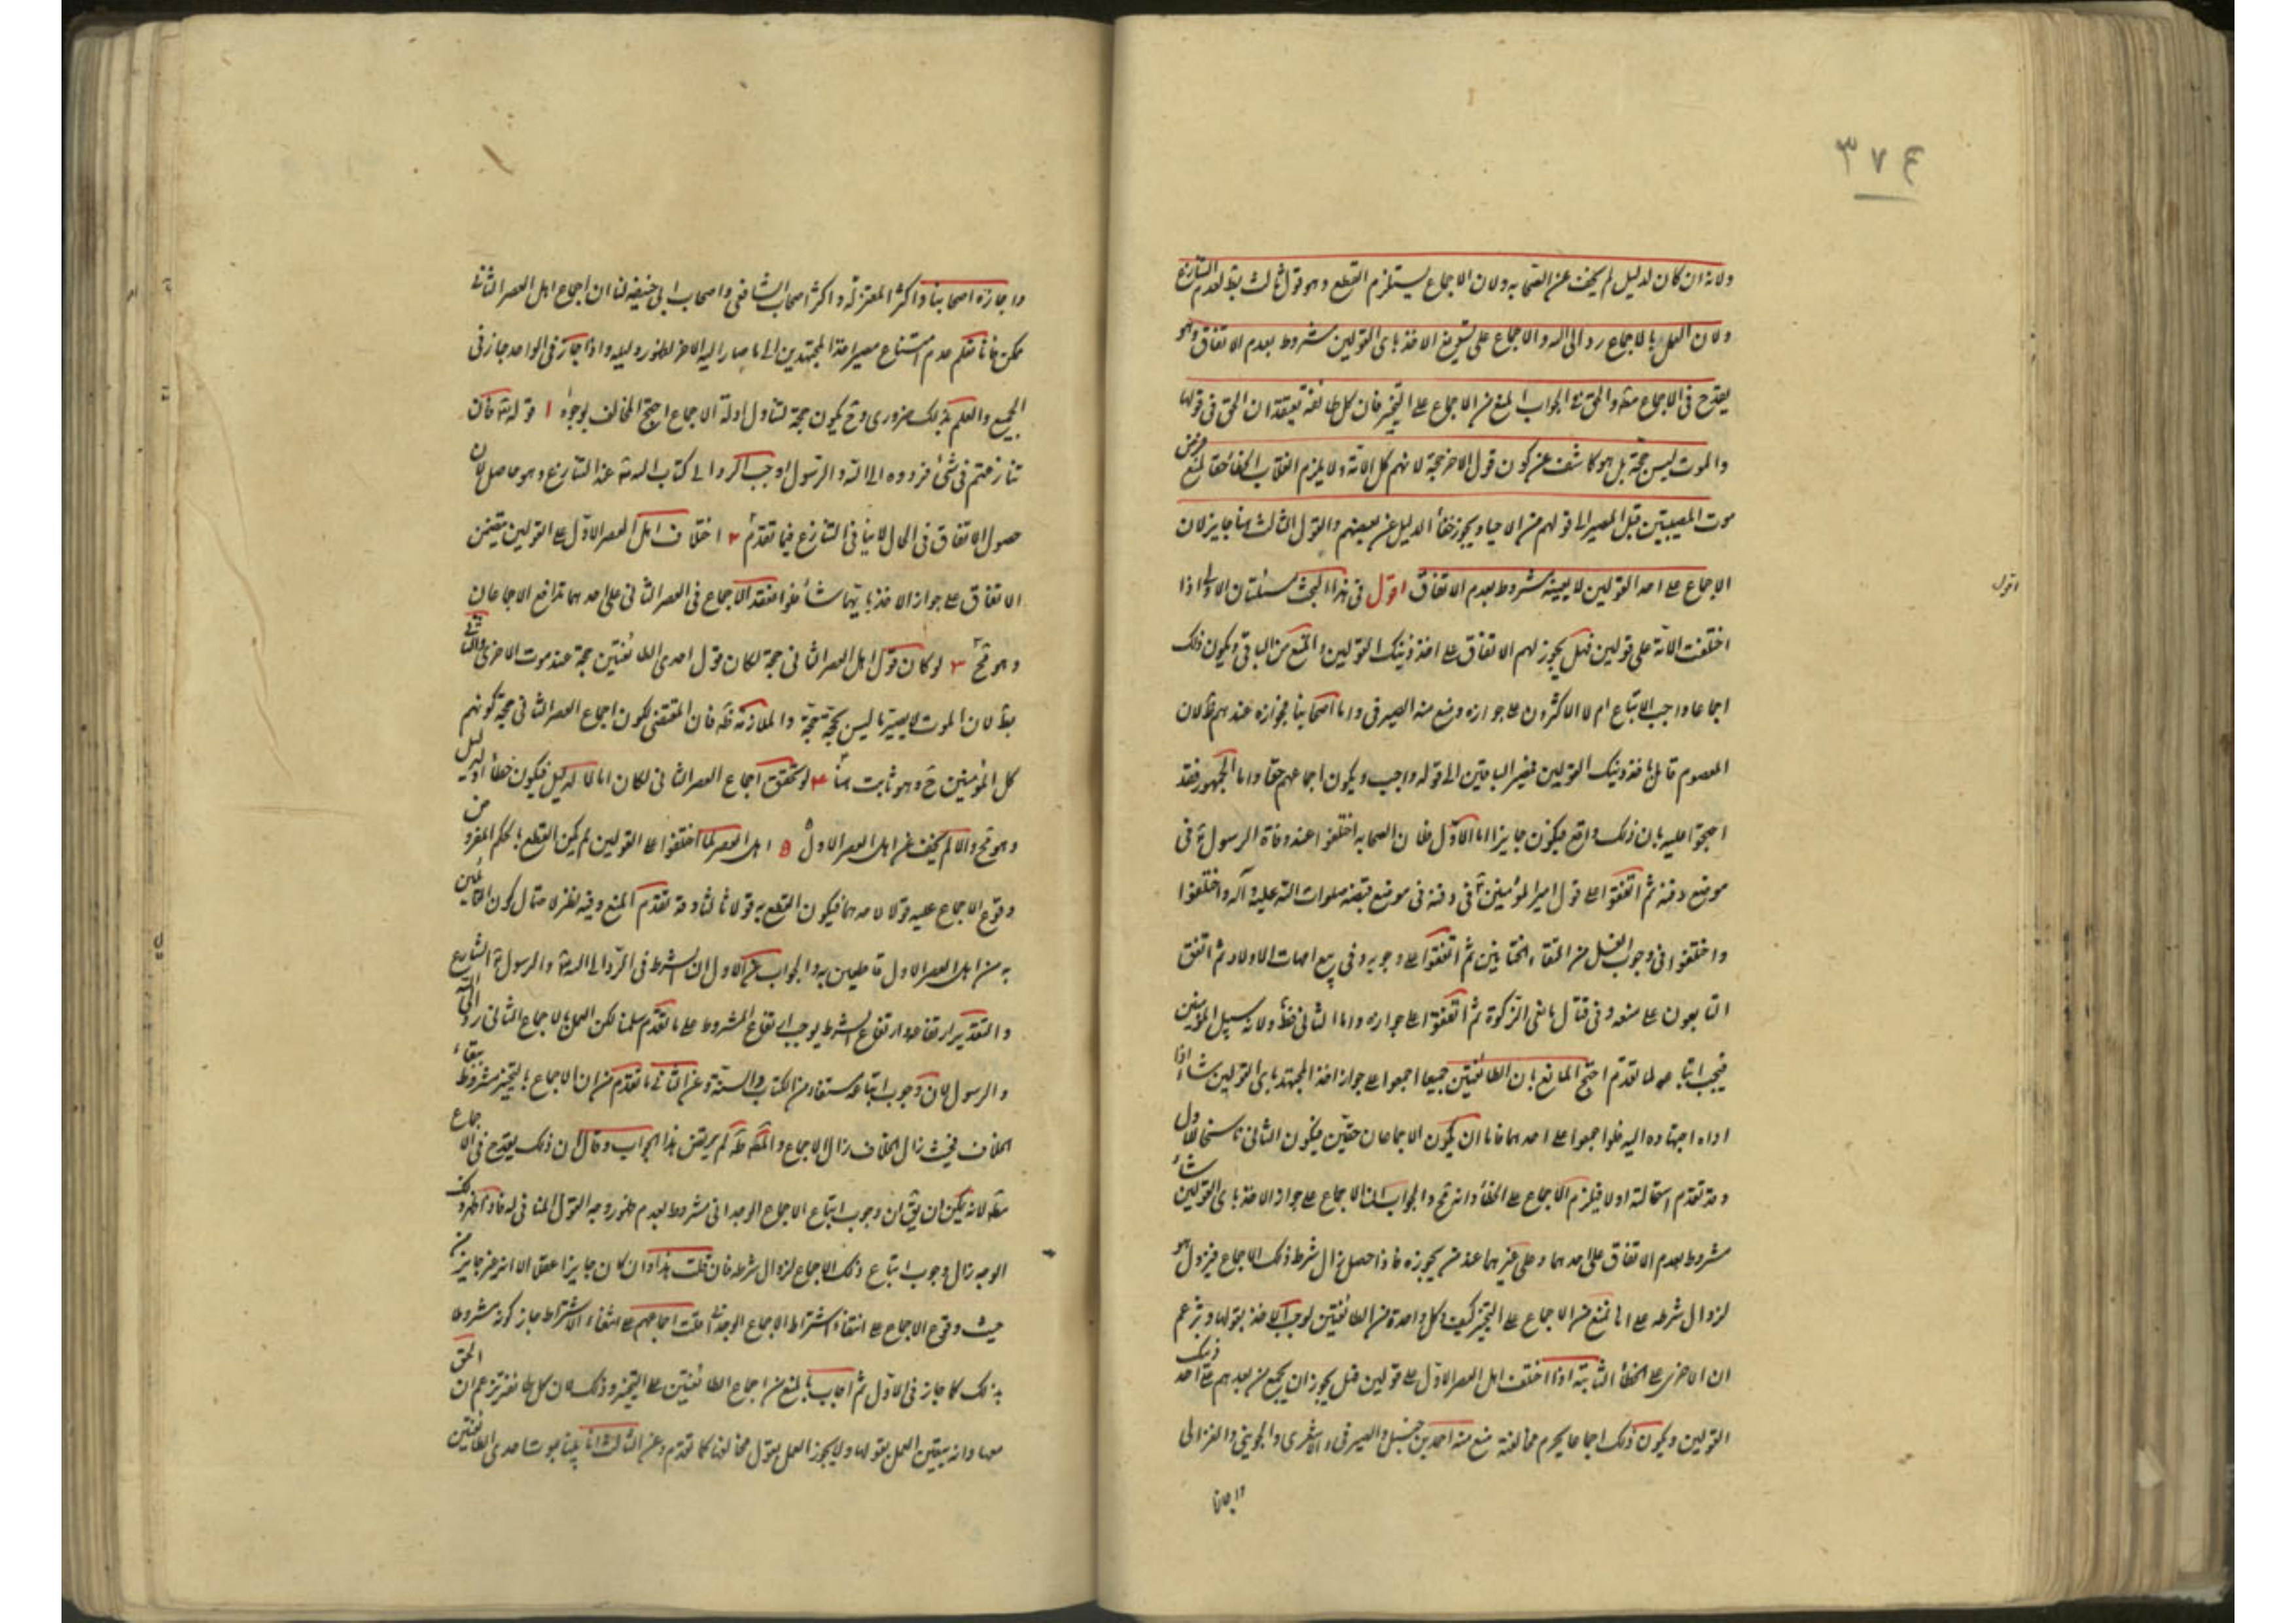 ٣٧٤
ولانه ان كان لدليل لم يخف عن الصحابه ولان الاجماع يستلزم القطع وهو قول ثالث بقد لعدم التنازع
ولان العمل بالاجماع رد الى الله والاجماع على تسويغ الاخذ باى القولين مشروط بعدم الاتفاق وهو
يقدح فى الاجماع مطه والحق فى الجواب المنع من الاجماع على التخير فان كل طائفة تعتقد ان الحق فى قولها
والموت ليس حجة بل هو كاشف عن كون قول الاخر حجة لانهم كل الامة ولا يلزم انقلاب الخطأ حقا لمنع فرض
موت المصيبتين قبل المصير الى قولهم من الاحياء ويجوز خفأ الدليل عن بعضهم والقول الثالث هنا جايز لان
الاجماع على احد القولين لا بعينه مشروط بعدم الاتفاق اقول فى هذا البحث مسئلتان الاولى اذا
اقول
اختلفت الامة على قولين فهل يجوز لهم الاتفاق على احد ذينك القولين والمنع من الباقى ويكون ذلك
اجماعا واجب الاتباع ام لا الاكثرون على جوازه ومنع منه الصيرفى واما اصحابنا فجوازه عندهم ظ لان
المعصوم قائل باحد ذينك القولين فيصير الباقين الى قوله واجب ويكون اجماعهم حقا واما الجمهور فقد
احتجوا عليه بان ذلك واقع فيكون جايزا اما الاول فلان الصحابه اختلفوا عند وفاة الرسول ﷺ فى
موضع دفنه ثم اتفقوا على قول امير المؤمنين ع فى دفنه فى موضع قبضه صلوات الله عليه وآله واختلفوا
واختلفوا فى وجوب الغسل من التقاء الختانين ثم اتفقوا على وجوبه وفى بيع امهات الاولاد ثم اتفق
التابعون على منعه وفى قتال مانعى الزكوة ثم اتفقوا على جوازه واما الثانى فظ ولانه سبيل المؤمنين
فيجب اتباعه لما تقدم احتج المانع بان الطائفتين جميعا اجمعوا على جواز اخذ المجتهد باى القولين شاء اذا
اداه اجتهاده اليه فلو اجمعوا على احدهما فاما ان يكون الاجماعان حقين فيكون الثانى ناسخا للاول
وقد تقدم استحالته اولا فيلزم الاجماع على الخطأ وانه مح والجواب ان الاجماع على جواز الاخذ باى القولين شاء
مشروط بعدم الاتفاق على احدهما وعلى غيرهما عند من يجوزه فاذا حصل زال شرط ذلك الاجماع فيزول هو
لزوال شرطه على انا نمنع من الاجماع على التخير كيف وكل واحدة من الطائفتين توجب الاخذ بقولها وتزعم
ان الاخرى على الخطأ الثانية اذا اختلف اهل العصر الاول على قولين فهل يجوز ان يجمع من بعدهم على احد ذينك
القولين ويكون ذلك اجماعا يحرم مخالفته منع منه احمد بن حنبل والصيرفى والاشعرى والجوينى والغزالى
واجازه
واجازه اصحابنا واكثر المعتزلة واكثر اصحاب الشافعى واصحاب ابى حنيفه لنا ان اجماع اهل العصر الثانى
ممكن فانا نعلم عدم امتناع مصير احد المجتهدين الى ما صار اليه الاخر لظهور دليله واذا جاز فى الواحد جاز فى
الجميع والعلم بذلك ضرورى وح يكون حجة لتناول ادلة الاجماع احتج المخالف بوجوه ١ قوله تع فان
تنازعتم فى شئ فردوه الى الله والرسول اوجب الرد الى كتاب الله تع عند التنازع وهو حاصل لان
حصول الاتفاق فى الحال لا ينافى التنازع فيما تقدم ٢ اختلاف اهل العصر الاول على القولين يتضمن
الاتفاق على جواز الاخذ بايهما شاء فلو انعقد الاجماع فى العصر الثانى على احدهما تدافع الاجماعان
وهو مح ٣ لو كان قول اهل العصر الثانى حجة لكان قول احدى الطائفتين حجة عند موت الاخرى والتالى
بط لان الموت لا يصير ما ليس بحجة حجة والملازمة ظه فان المقتضى لكون اجماع العصر الثانى حجة كونهم
كل المؤمنين ح وهو ثابت هنا ٤ لو تحقق اجماع العصر الثانى لكان اما لا لدليل فيكون خطأ او لدليل
وهو مح والا لم يخف عن اهل العصر الاول ٥ اهل العصر لما اختلفوا على القولين لم يكن القطع بالحكم المفروض
وقوع الاجماع عليه قولا لاحدهما فيكون القطع به قولا ثالثا وقد تقدم المنع وفيه نظر لاحتمال كون القائلين
به من اهل العصر الاول قاطعين به والجواب عن الاول ان الشرط فى الرد الى الله تع والرسول ﷺ التنازع
والتقدير ارتفاعه وارتفاع الشرط يوجب ارتفاع المشروط على ما تقدم سلمنا لكن العمل بالاجماع الثانى رد الى الله
والرسول لان وجوب اتباعه مستفاد من الكتاب والسنة وعن الثانى ما تقدم من ان الاجماع بالتخير مشروط ببقاء
الخلاف فحيث زال الخلاف زال الاجماع والمص طه لم يرتض هذا الجواب وقال ان ذلك يقدح فى الاجماع
مطه لانه يمكن ان يق ان وجوب اتباع الاجماع الوحدانى مشروط بعدم ظهور وجه القول المنافى له فاذا ظهر ذلك
الوجه زال وجوب اتباع ذلك الاجماع لزوال شرطه فان قلت هذا وان كان جايزا عقلا الا انه غير جايز
حيث وقوع الاجماع على انتفاء اشتراط الاجماع الوحدانى قلت اجماعهم على انتفاء الاشتراط جاز كونه مشروطا
بذلك كما جاز فى الاول ثم اجاب بالمنع من اجماع الطائفتين على التخير وذلك لان كل طائفة تزعم ان الحق
معها وانه يتعين العمل بقولها ولا يجوز العمل بقول مخالفها كما تقدم وعن الثالث انا بموت احدى الطائفتين